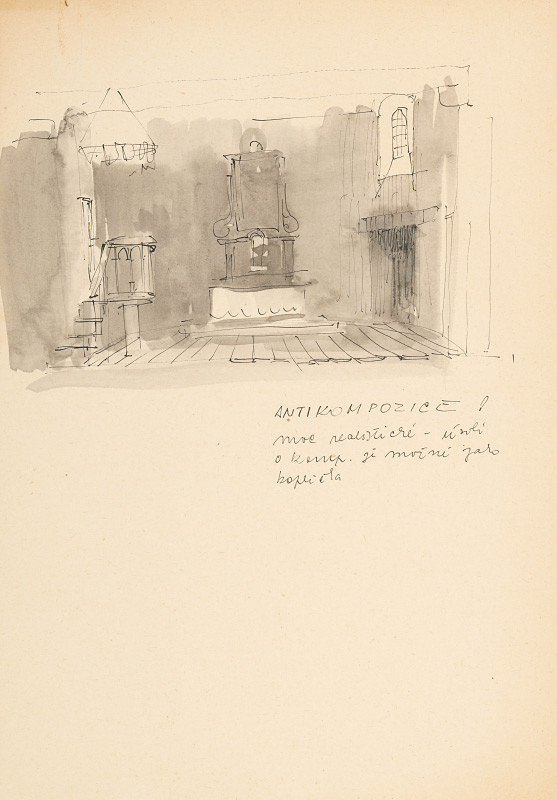 ANTIKOMPOZICE !
moc realistické -
o komp. je možné jako
kaplička